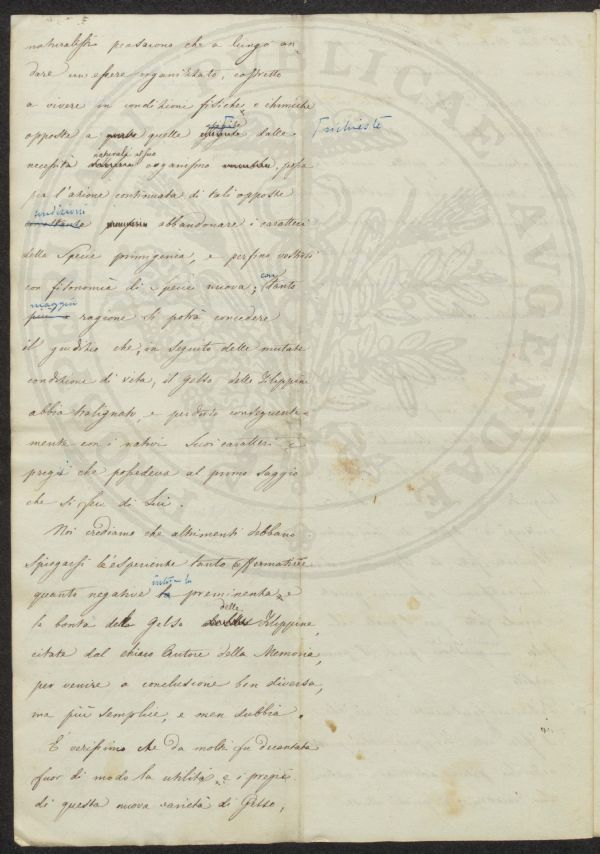 naturalisti pensarono che a lungo an
dare un essere organizzato, costretto
a vivere in condizioni fisiche, e chimiche
opposte a quelle volute dalle richieste
necessità naturali del suo organismo, possa
per l'azione continuata di tali opposte
condizioni abbandonare i caratteri
della Specie primigenia, e perfino vestirsi
con fisonomia di Specie nuova; con tanto
maggior ragione si potrà concedere
il giudizio che, in seguito delle mutate
condizione di vita, il gelso delle Filippine
abbia tralignato, e perduto conseguente=
mente con i nativi suoi caratteri i
pregi che possedeva al primo saggio
che si fece di Lui.
Noi crediamo che altrimenti debbano
spiegarsi le esperienze tanto affermative
quanto negative preminenza e
la bontà del Gelso delle Filippine,
citate dal chiaro Autore della Memoria,
per venire a conclusione ben diversa,
ma più semplice, e men dubbia.
È verissimo che da molti fu decantata
fuor di modo la utilità, e i pregi
di questa nuova varietà di Gelso,